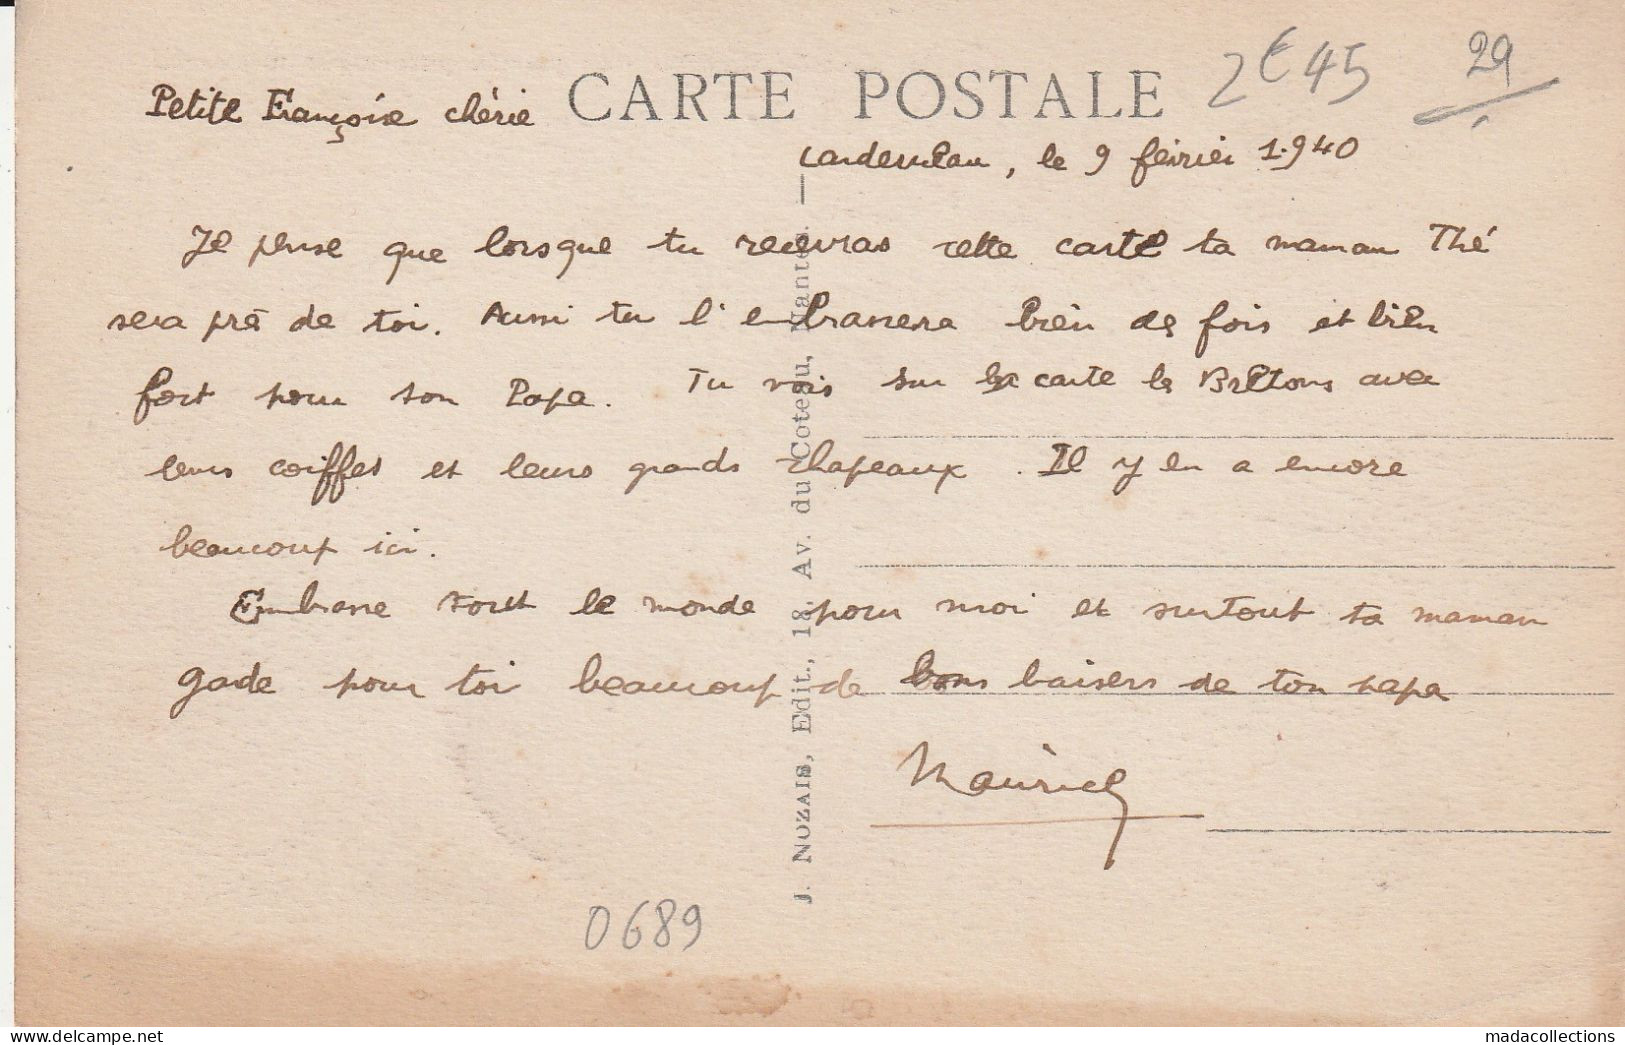 2€45
29
CARTE POSTALE
Petite Françoise chérie
Landerneau, le 9 février 1.940
Je pense que lorsque tu recevras cette carte ta maman Thé
sera prè de toi. Aussi tu l'embrassera bien des fois et bien
fort pour son Papa. Tu vois sur la carte les Bretons avec
leurs coiffes et leurs grands chapeaux. Il y en a encore
beaucoup ici.
Embrasse tout le monde pour moi et surtout ta maman
garde pour toi beaucoup de bons baisers de ton papa
Maurice
J. NOZAIS, Edit., 18, Av. du Coteau, Nantes. —
0689
https://www.delcampe.net
madacollections